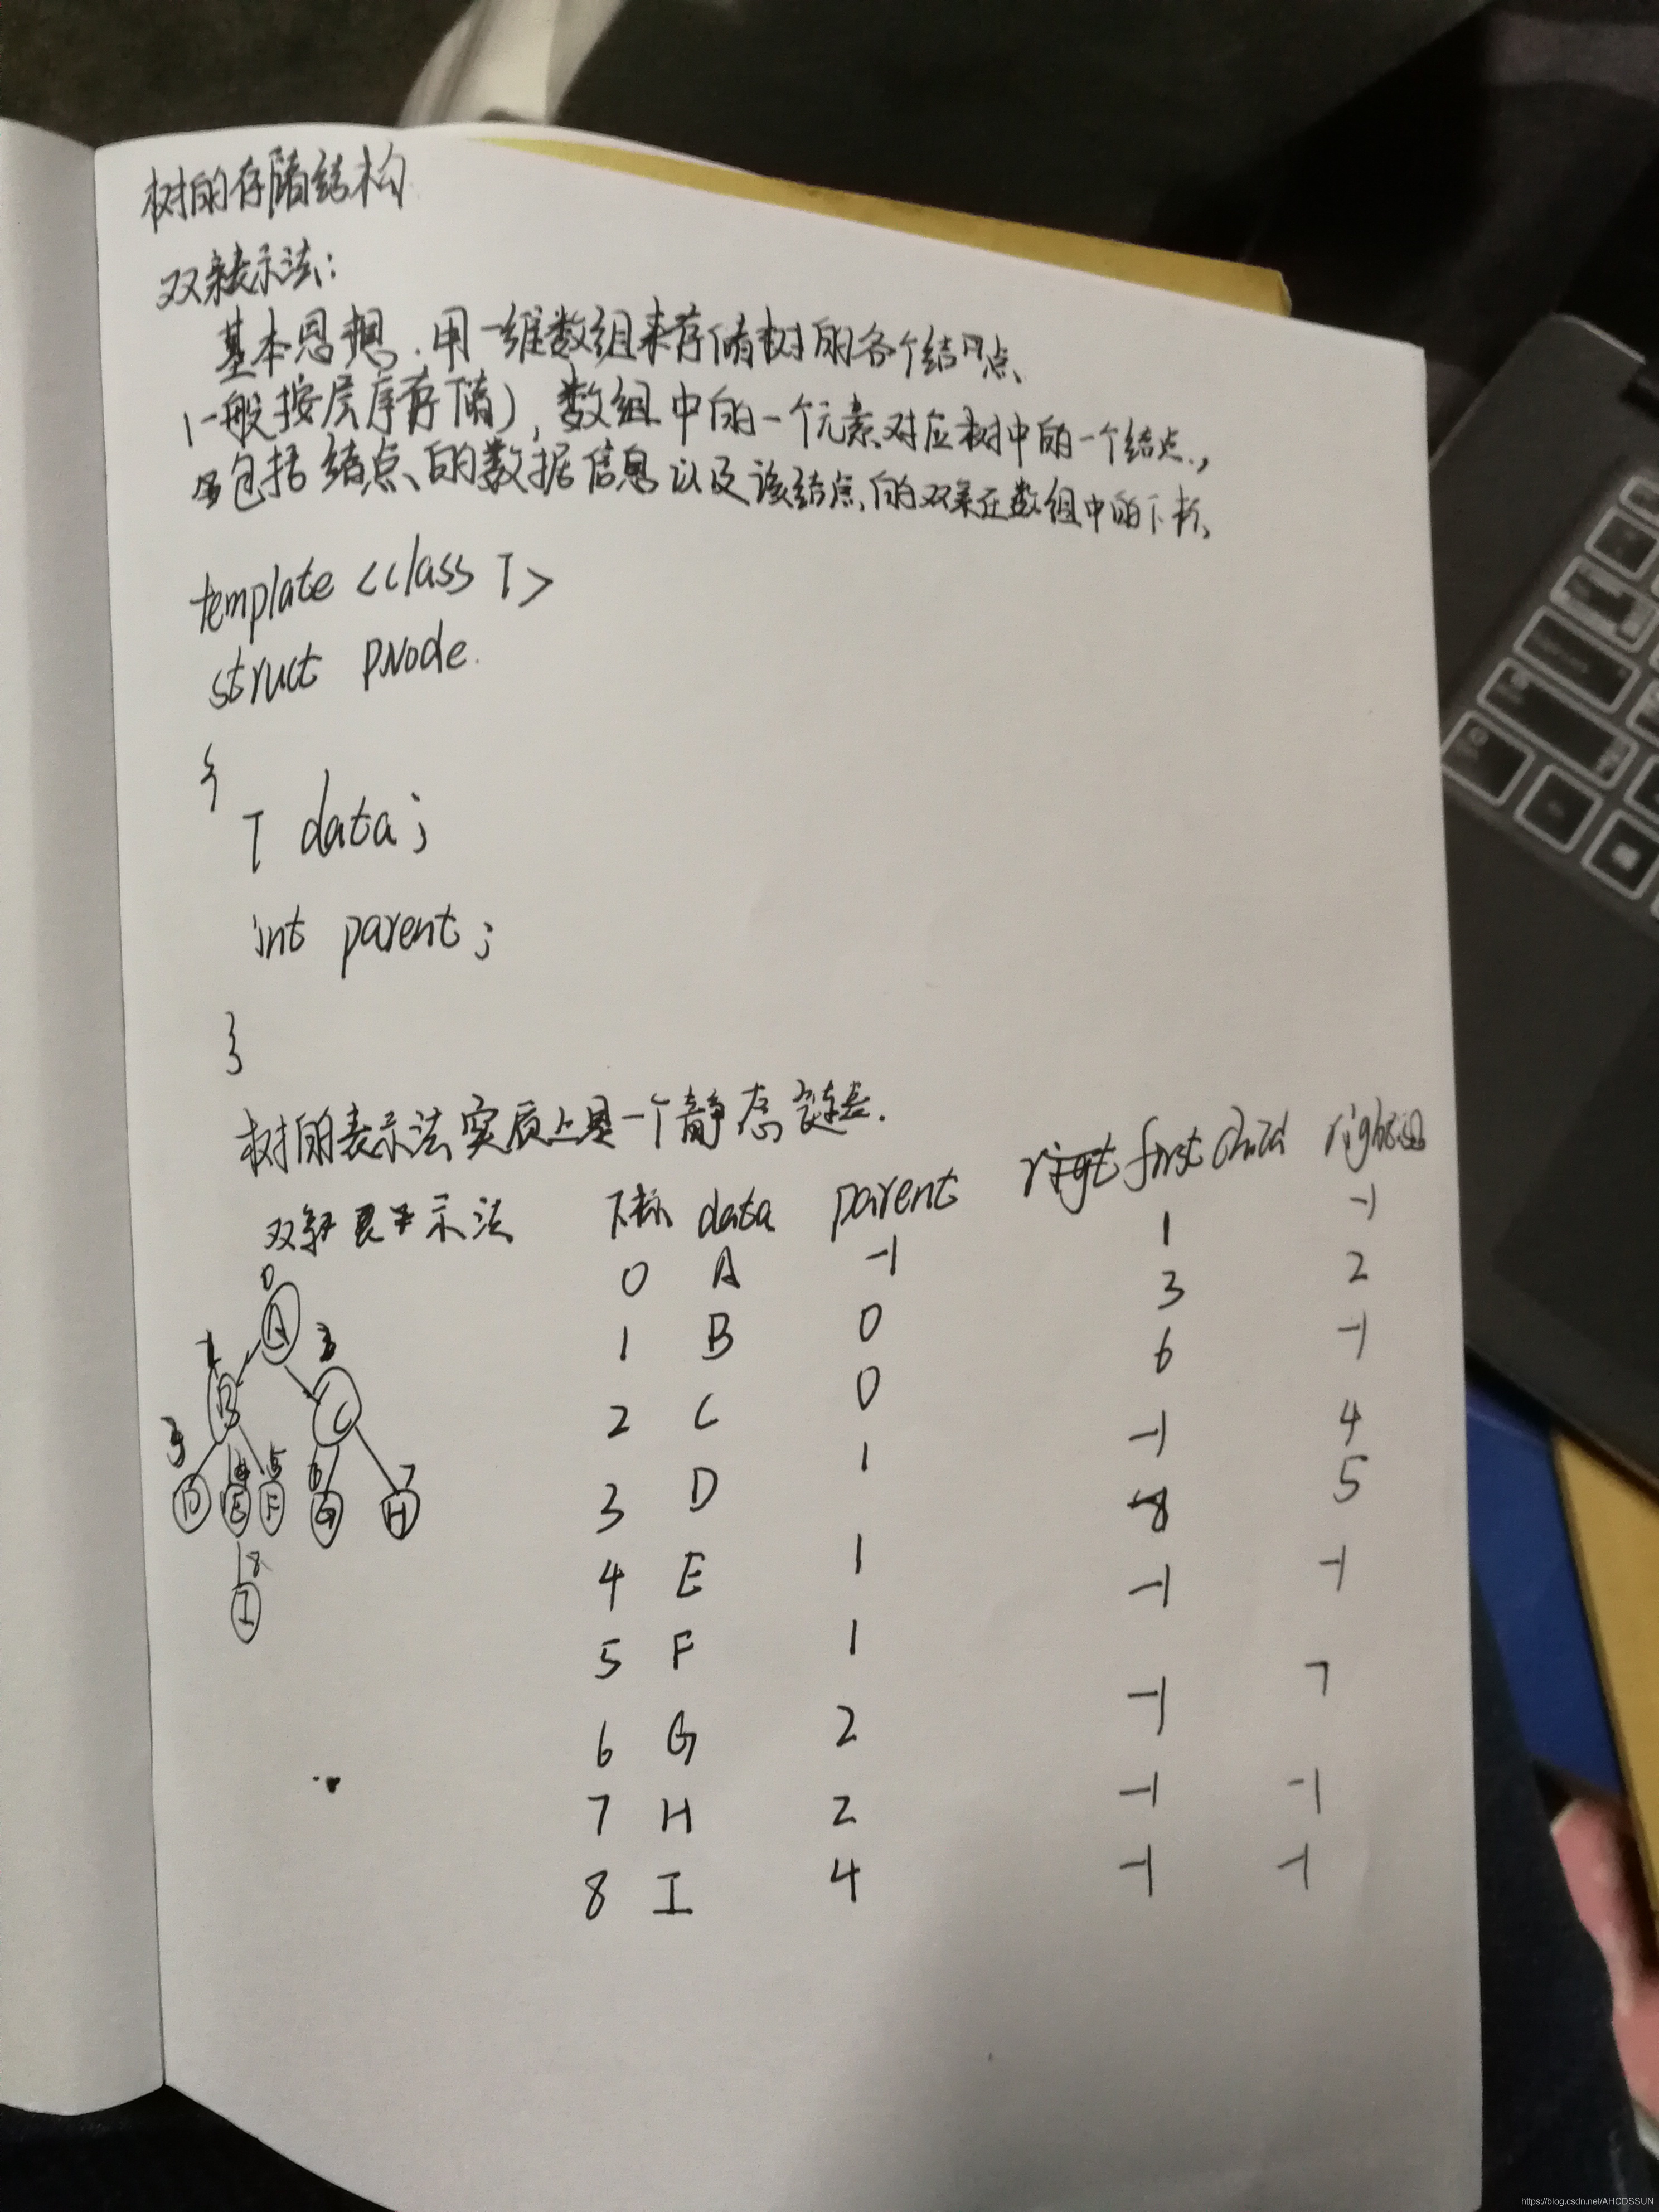 树的存储结构
双亲表示法:
基本思想.用一维数组来存储树的各个结点
(一般按层序存储),数组中的一个元素对应树中的一个结点,
包括结点的数据信息以及该结点的双亲在数组中的下标
template <class T>
struct PNode
{
T data;
int parent;
}
树的表示法实质上是一个静态链表.
双亲表示法 下标 data parent firstchild
0 A -1 1 -1
1 B 0 3 2
2 C 0 6 -1
3 D 1 -1 4
4 E 1 8 5
5 F 1 -1 -1
6 G 2 -1 7
7 H 2 -1 -1
8 I 4 -1 -1
0
A
1
B
C
3
D
4
E
5
F
6
G
7
H
8
I
https://blog.csdn.net/AHCDSSUN